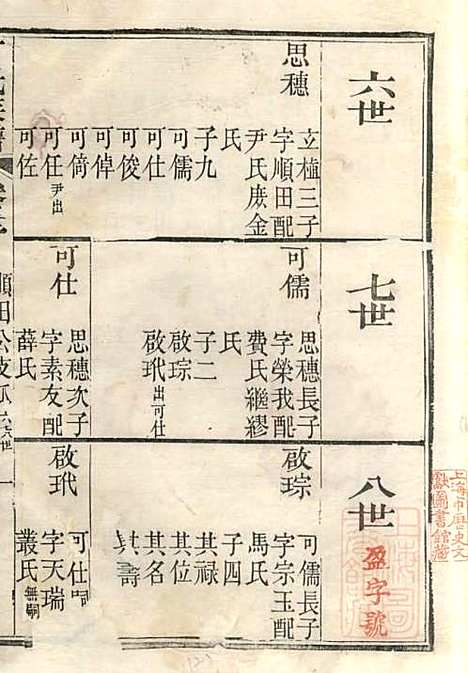 六世
思穗
立植三子
字順田配
尹氏庶金
氏
子九
可儒
可仕
可俊
可倬
可倚
可任尹出
可佐
七世
可儒
思穗長子
字榮我配
費氏繼繆
氏
子二
啟琮
啟玳出可仕
可仕
思穗次子
字素友配
薛氏
八世
啟琮
可儒長子
字宗玉配
馬氏
子四
其祿
其位
其名
其壽
啟玳
可仕嗣
字天瑞
叢氏無嗣
順田公支
六七八世
盈字號
上海市歷史文
獻圖書館藏